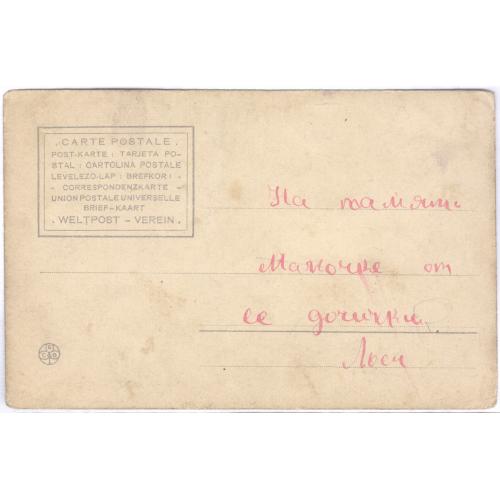 . CARTE POSTALE .
POST-KARTE : TARJETA PO-
STAL : CARTOLINA POSTALE
LEVELEZO-LAP : BREFKORT -
- CORRESPONDENZKARTE -
UNION POSTALE UNIVERSELLE
BRIEF-KAART
. WELTPOST - VEREIN .
На память
Мамочке от
ее дочички